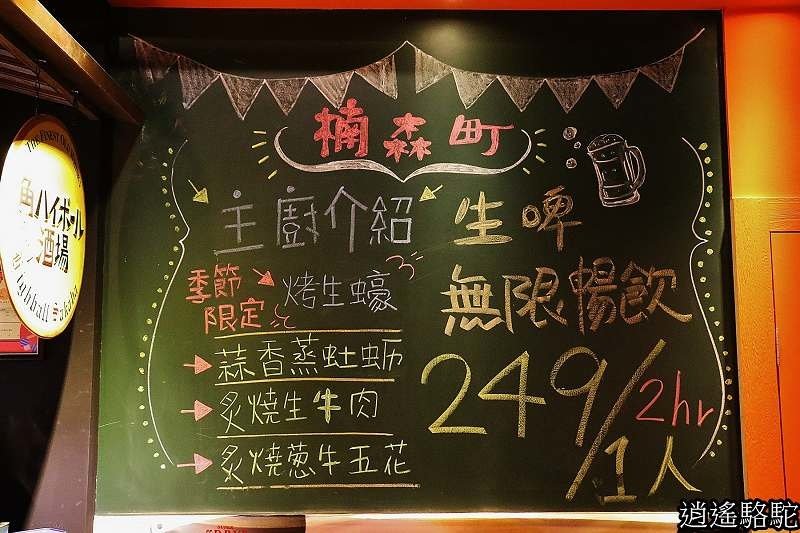 楠森町
主廚介紹
季節
限定
烤生蠔
蒜香蒸牡蛎
炙燒生牛肉
炙燒蔥牛五花
生啤
無限暢飲
249/2hr
1人
ハイボール
酒場
逍遙駱駝